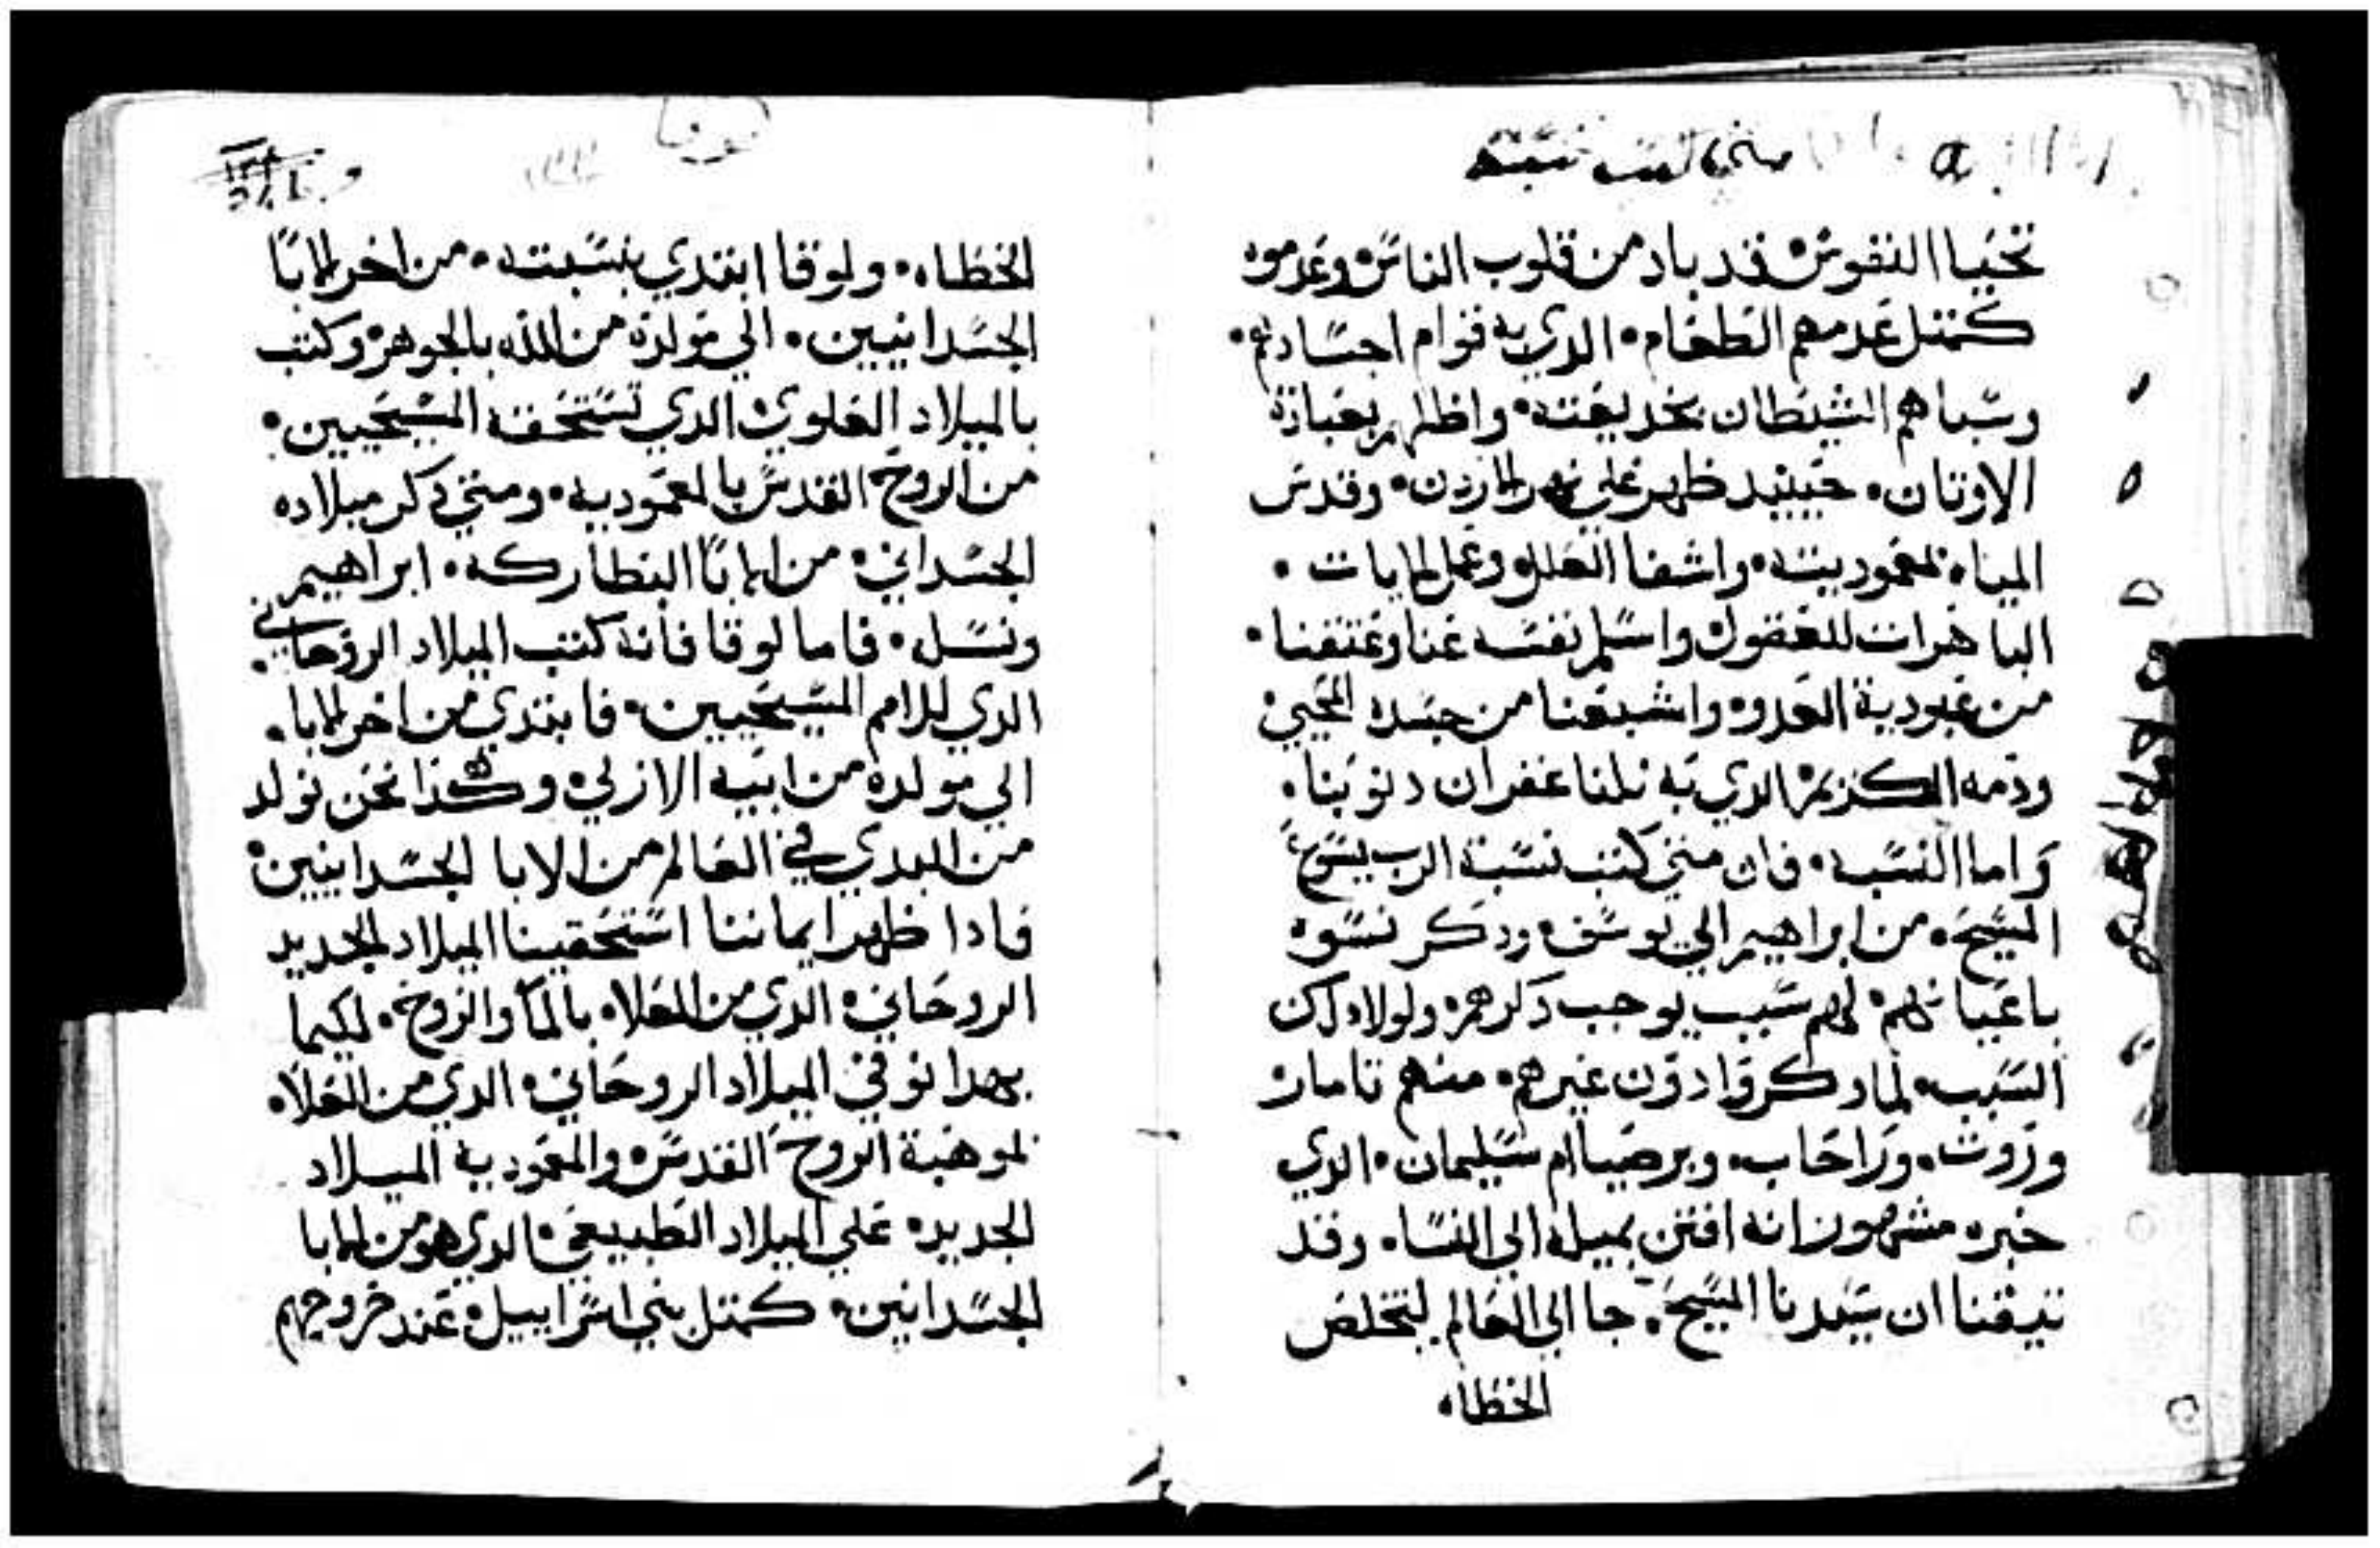 تحيا النفوس قد باد من قلوب الناس وعدموه
كمتل عدمهم الطعام الدي به قوام اجسادهم
وسباهم الشيطان بخديعته واظلهم بعبادة
الاوتان حينيد ظهر علي نهر الاردن وقدس
المياه بمعموديته واشفا العلل وعمل الايات
الباهرات للعقول واسلم نفسه عنا وعتقنا
من عبودية العدو واشبعنا من جسده المحيي
ودمه الكريم الدي به نلنا غفران دنوبنا
واما النسبه فان متي كتب نسبة الرب يسوع
المسيح من ابراهيم الي يوسف ودكر نسوه
باعيانهم لهم سبب يوجب دكرهم ولولا دلك
السبب لما دكروا دون غيرهم منهم تامار
وروت وراحاب وبرصبا ام سليمان الدي
خبره مشهور انه افتتن بميله الي النسا وقد
تيقنا ان سيدنا المسيح جا الي العالم ليخلص
الخطاه
الخطاه ولوقا ابتدي بنسبته من اخر الابا
الجسدانيين الي مولده من الله بالجوهر وكتب
بالميلاد العلوي الدي تستحقه المسيحيين
من الروح القدس بالمعموديه ومتي دكر ميلاده
الجسداني من الابا البطاركه ابراهيم
ونسل فاما لوقا فانه كتب الميلاد الروحاني
الدي للامم المسيحيين فابتدي من اخر الابا
الي مولده من ابيه الازلي وهكدا نحن نولد
من البدي في العالم من الابا الجسدانيين
فادا ظهر ايماننا استحقينا الميلاد الجديد
الروحاني الدي من العلاه بالما والروح لكيما
بهدا نوفي الميلاد الروحاني الدي من العلاه
لموهبة الروح القدس والمعمودية الميلاد
الجديد علي الميلاد الطبيعي الدي هو من الابا
الجسدانين كمتل بني اسراييل عند خروجهم